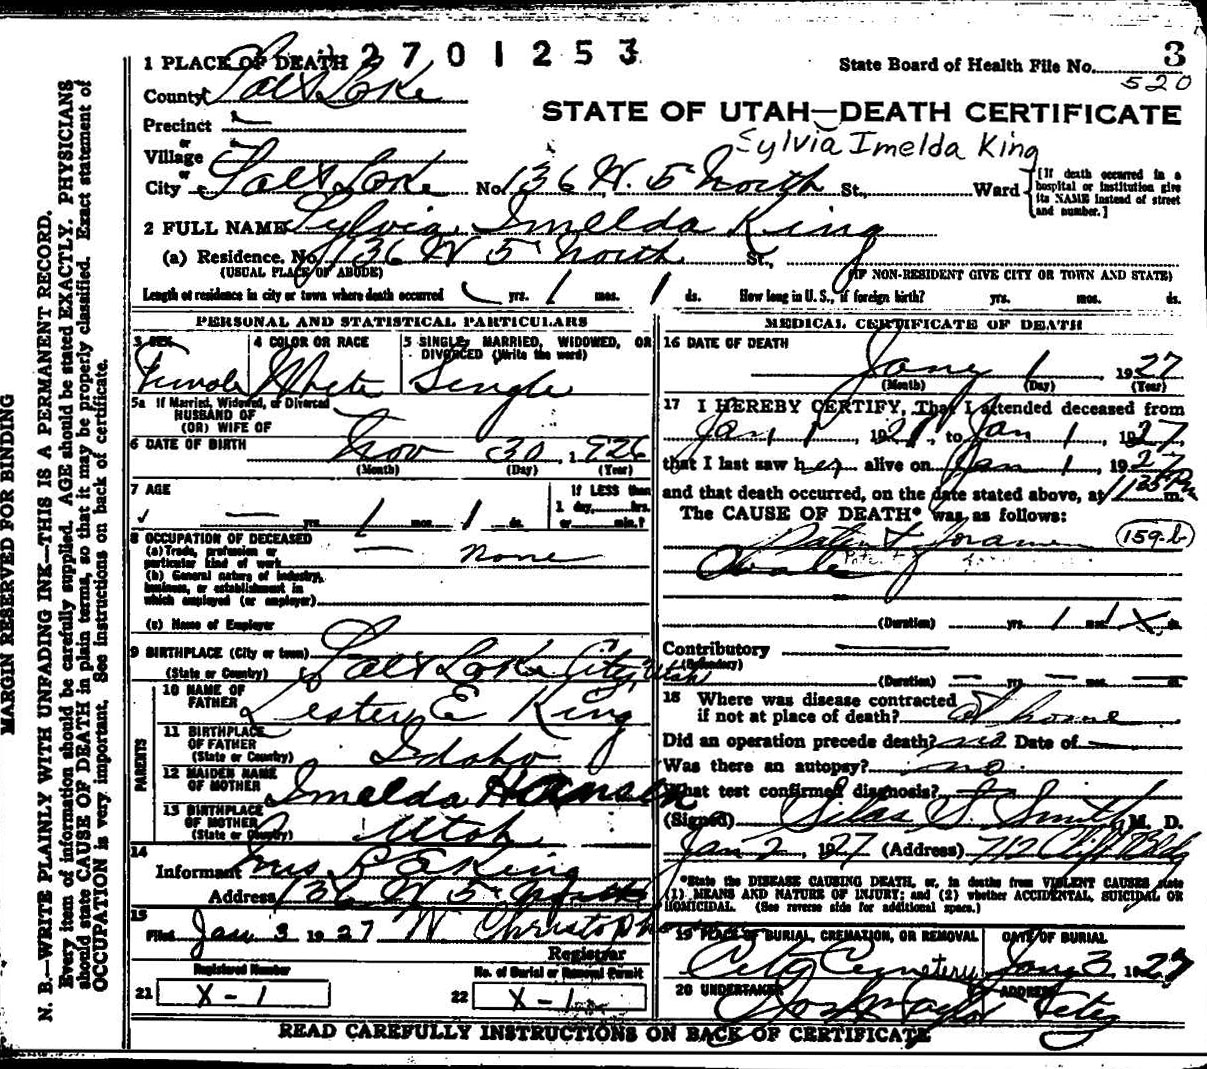 2701253
3
1 PLACE OF DEATH
State Board of Health File No.
520
County Salt Lake
STATE OF UTAH—DEATH CERTIFICATE
Precinct
or
Sylvia Imelda King
Village
or
City Salt Lake No. 136 W. 5 North St., Ward
[If death occurred in a hospital or institution give its NAME instead of street and number.]
2 FULL NAME Sylvia Imelda King
(a) Residence, No. 136 W 5 North St.,
(USUAL PLACE OF ABODE) (IF NON-RESIDENT GIVE CITY OR TOWN AND STATE)
Length of residence in city or town where death occurred yrs. 1 mos. 1 ds. How long in U. S., if foreign birth? yrs. mos. ds.
PERSONAL AND STATISTICAL PARTICULARS
3 SEX 4 COLOR OR RACE 5 SINGLE, MARRIED, WIDOWED, OR DIVORCED (Write the word)
Female White Single
5a If Married, Widowed, or Divorced
HUSBAND OF
(OR) WIFE OF
6 DATE OF BIRTH Nov 30, 1926
(Month) (Day) (Year)
7 AGE
If LESS than
1 day, hrs.
— yrs. 1 mos. 1 ds. or min.?
8 OCCUPATION OF DECEASED
(a) Trade, profession or
particular kind of work — none
(b) General nature of industry,
business, or establishment in
which employed (or employer)
(c) Name of Employer
9 BIRTHPLACE (City or town)
(State or Country) Salt Lake City, Utah
PARENTS
10 NAME OF
FATHER Lester E King
11 BIRTHPLACE
OF FATHER
(State or Country) Idaho
12 MAIDEN NAME
OF MOTHER Imelda Hansen
13 BIRTHPLACE
OF MOTHER
(State or Country) Utah
14
Informant Mrs L E King
Address 136 W 5 North
15
Filed Jan 3 1927 W Christoph
Registrar
Registered Number No. of Burial or Removal Permit
21 X-1 22 X-1
MEDICAL CERTIFICATE OF DEATH
16 DATE OF DEATH
Jany 1 1927
(Month) (Day) (Year)
17 I HEREBY CERTIFY, That I attended deceased from
Jan 1, 1927, to Jan 1, 1927,
that I last saw her alive on Jan 1, 1927
and that death occurred, on the date stated above, at 11 35 P m.
The CAUSE OF DEATH* was as follows:
Patent Foramen 159-b
Ovale
(Duration) yrs. 1 mos. 1 ds.
Contributory
(Secondary)
(Duration) — yrs. — mos. — ds.
18 Where was disease contracted
if not at place of death? at home
Did an operation precede death? no Date of —
Was there an autopsy? no
What test confirmed diagnosis?
(Signed) Silas S. Smith, M. D.
Jan 2, 1927 (Address) 712 Clift Bldg
*State the DISEASE CAUSING DEATH, or, in deaths from VIOLENT CAUSES state
(1) MEANS AND NATURE OF INJURY; and (2) whether ACCIDENTAL, SUICIDAL OR
HOMICIDAL. (See reverse side for additional space.)
19 PLACE OF BURIAL, CREMATION, OR REMOVAL DATE OF BURIAL
City Cemetery Jany 3, 1927
20 UNDERTAKER ADDRESS
Taylor City
READ CAREFULLY INSTRUCTIONS ON BACK OF CERTIFICATE
MARGIN RESERVED FOR BINDING
N. B.—WRITE PLAINLY WITH UNFADING INK—THIS IS A PERMANENT RECORD.
Every item of information should be carefully supplied. AGE should be stated EXACTLY. PHYSICIANS
should state CAUSE OF DEATH in plain terms, so that it may be properly classified. Exact statement of
OCCUPATION is very important. See instructions on back of certificate.